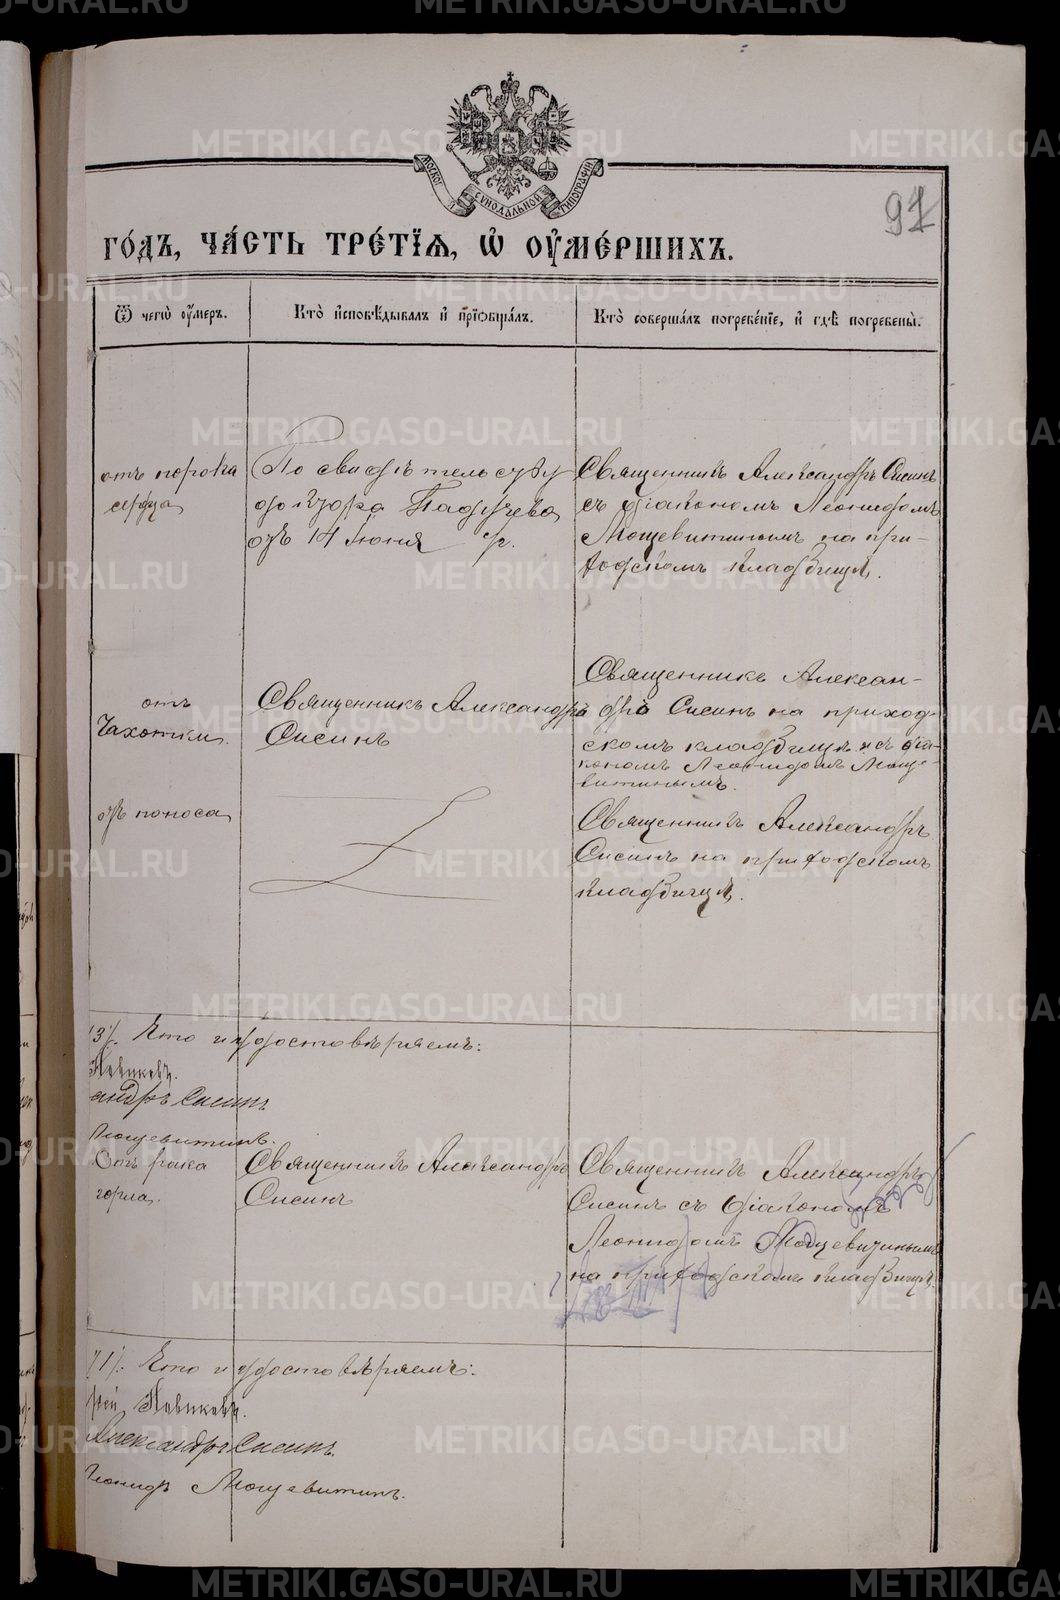 METRIKI.GASO-URAL.RU
МОСКОВ. СѴНОДАЛЬНОЙ ТИПОГРАФІИ
91
го́дъ, ча́сть тре́тїѧ, ѡ҆ ᲂу҆ме́ршихъ.
Ѿ чегѡ̀ ᲂу҆́меръ.
Кто̀ и҆сповѣ́дывалъ и҆ прїѡбща́лъ.
Кто̀ соверша́лъ погребе́нїе, и҆ гдѣ̀ погребены̀.
отъ порока
сердца
По свидѣтельству
доктора
отъ 14 Июня
Священникъ Александръ Сисинъ
съ діакономъ Леонидомъ
Мощевитинымъ на при-
ходскомъ кладбищѣ.
отъ
Чахотки.
Священникъ Александръ
Сисинъ
Священникъ Алексан-
дръ Сисинъ на приход-
скомъ кладбищѣ и съ діа-
кономъ Леонидомъ Моще-
витинымъ.
отъ поноса
Священникъ Александръ
Сисинъ на приходскомъ
кладбищѣ.
Что и удостовѣряемъ:
андръ Сисинъ
Мощевитинъ.
Отъ рака
горла.
Священникъ Александръ
Сисинъ
Священникъ Александръ
Сисинъ съ діакономъ
Леонидомъ Мощевитинымъ
на приходскомъ кладбищѣ.
Что и удостовѣряемъ:
Александръ Сисинъ.
Леонидъ Мощевитинъ.